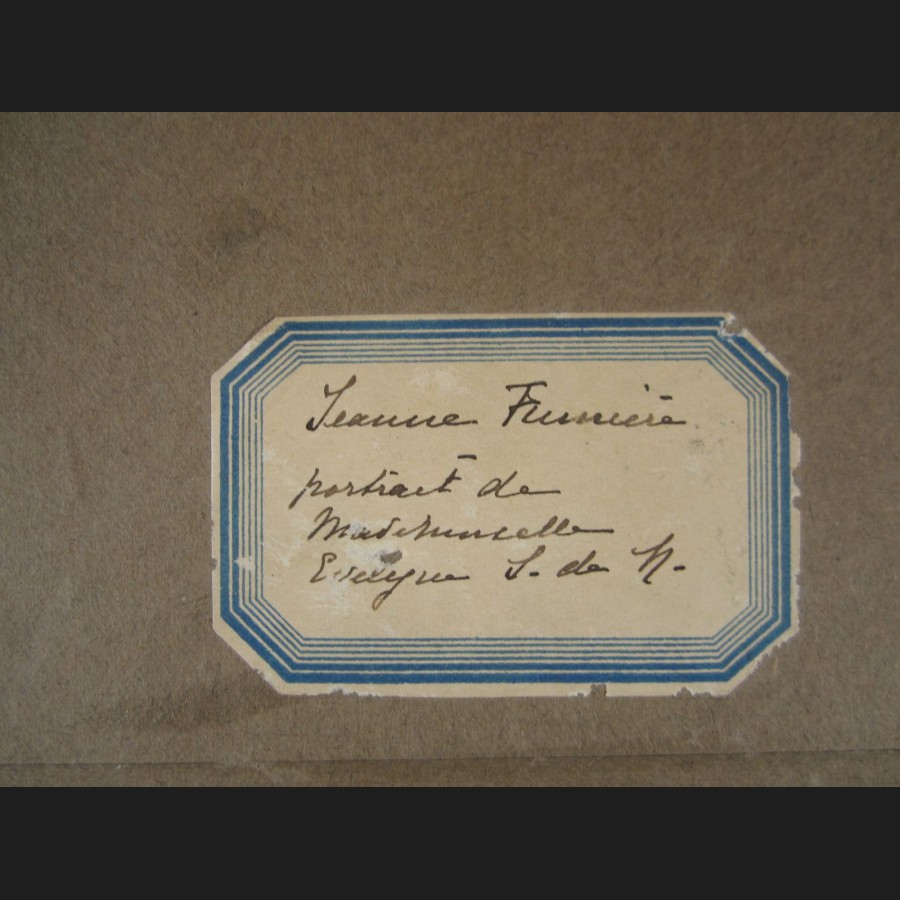 Jeanne Fumière
portrait de
Mademoiselle
Evelyne S. de N.